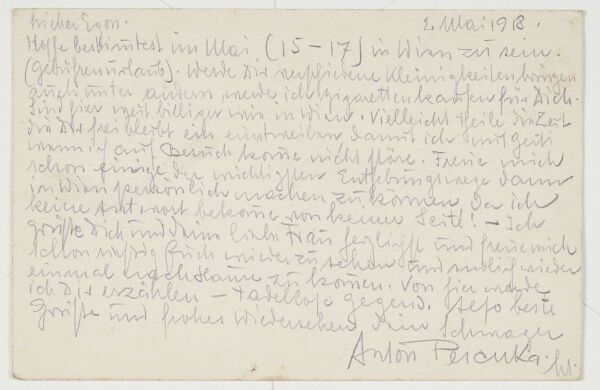 Lieber Egon. 2. Mai 1918.
Hoffe bestimmtest im Mai (15-17) in Wien zu sein.
(Gebührenurlaub). Werde Dir verschiedene Kleinigkeiten bringen
auch unter andern werde ich Zigaretten kaufen für Dich.
Sind hier weit billiger wie in Wien. Vielleicht theile die Zeit
die Dir frei bleibt ein damit ich mit
wenn ich auf Besuch komme nicht störe. Freue mich
schon einige der wichtigsten Enthebungswege dann
in Wien persönlich machen zu können da ich
keine Antwort bekome von keiner Seite! – Ich
Grüße Dich und deine liebe Frau herzlichst und freue mich
schon riesig Euch wieder zu sehen und endlich wieder
einmal nachhause zu komen. Von hier werde
ich Dir erzählen – tadellose Gegend. Also beste
Grüße und frohes Wiedersehen Dein Schwager
Anton Peschka.